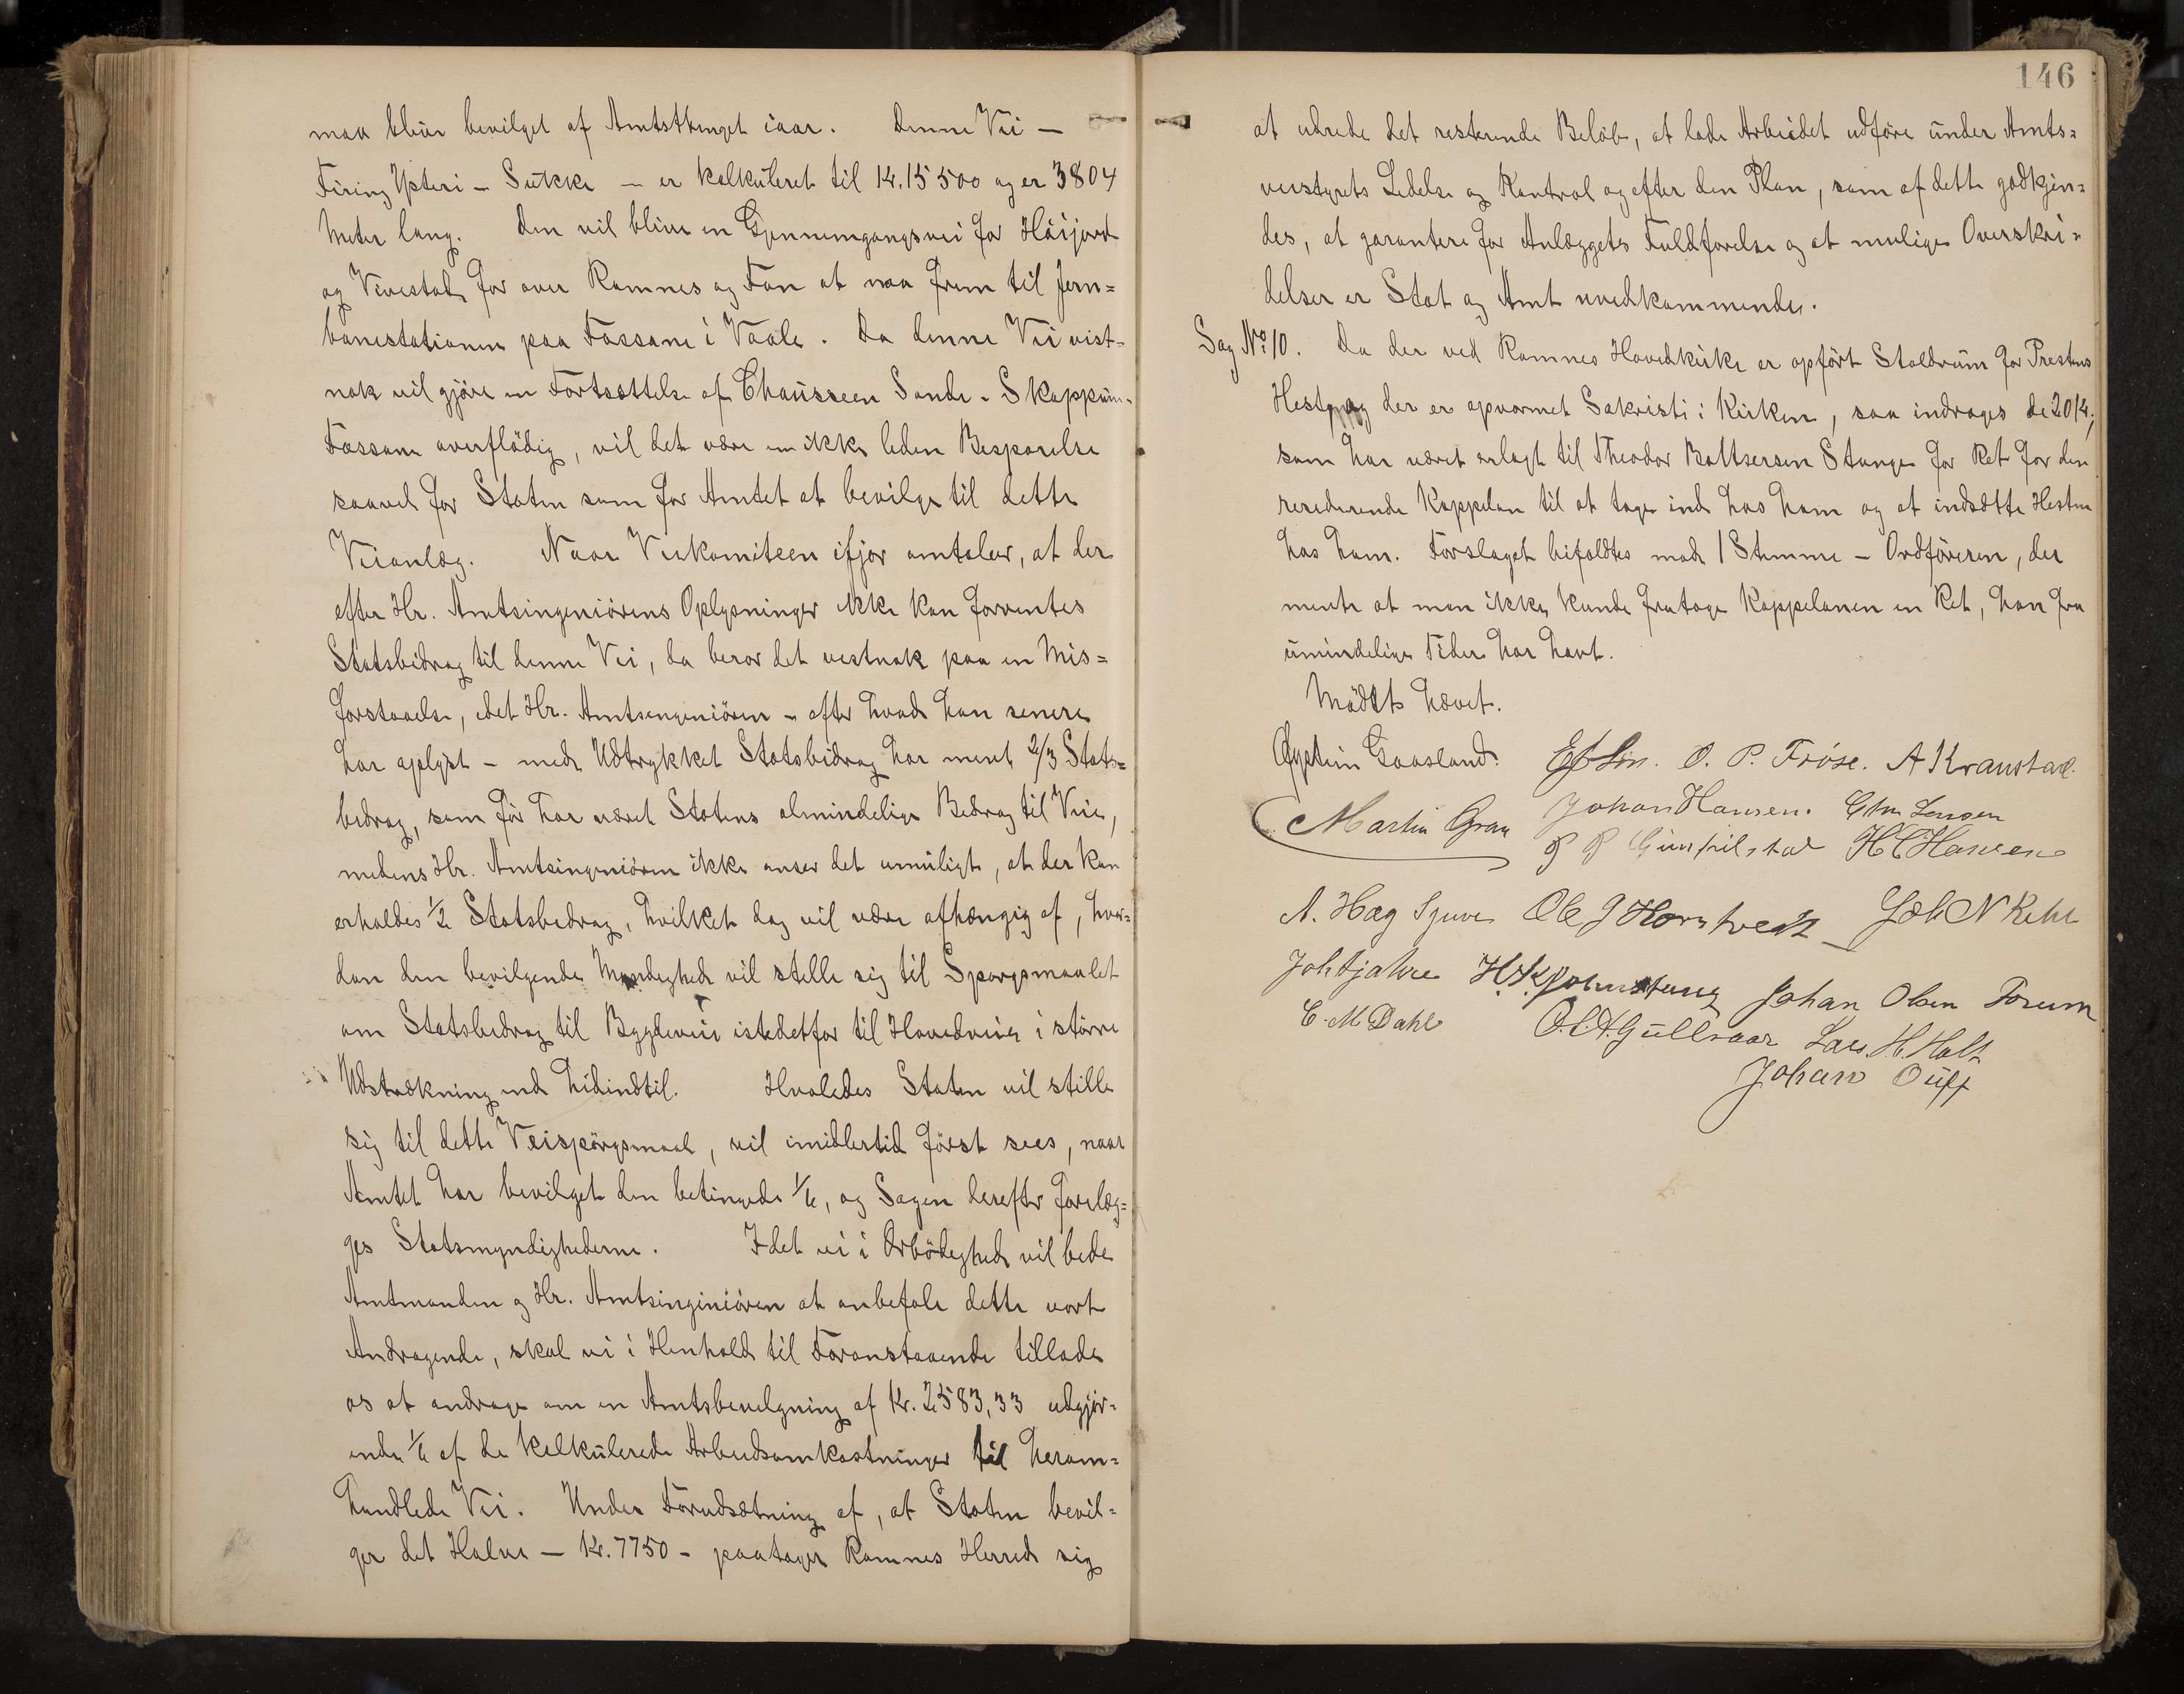 maa blive bevilget af Amtsthinget iaar. Denne Vei —
Firing Ypteri – Sukke – er kalkuleret til Kr. 15500 og er 3804
Meter lang. Den vil blive en Gjennemgangsvei for Høijord
og Vivestad for over Ramnes og Fon at naa frem til Jern=
banestationen paa Fossane i Vaale. Da denne Vei vist-
nok vil gjøre en Fortsættelse af Chausseen Sande - Skoppum-
Fossane overflødig, vil det være en ikke liden Besparelse
saavel for Staten som for Amtet at bevilge til dette
Veianlæg. Naar Veikomiteen ifjor omtaler, at der
efter Hr. Amtsingeniørens Oplysninger ikke kan forventes
Statsbidrag til denne Vei, da beror det vistnok paa en Mis=
forstaaelse, idet Hr. Amtsingeniøren – efter hvad han senere
har oplyst – med Udtrykket Statsbidrag har ment 2/3 Stats=
bidrag, som før har været Statens almindelige Bidrag til Veie,
medens Hr. Amtsingeniøren ikke anser det umuligt, at der kan
erholdes 1/2 Statsbidrag, hvilket dog vil være afhængig af, hvor-
dan den bevilgende Myndighed vil stille sig til Spørgsmaalet
om Statsbidrag til Bygdeveie istedetfor til Hovedveie i større
Udstrækning end hidindtil. Hvoledes Staten vil stille
sig til dette Veispørgsmaal, vil imidlertid først sees, naar
Amtet har bevilget den betingede 1/6, og Sagen derefter forelæg=
ges Statsmyndighederne. Idet vi i Ærbødighed vil bede
Amtmanden og Hr. Amtsinginiøren at anbefale dette vort
Andragende, skal vi i Henhold til Foranstaaende tillade
os at andrage om en Amtsbevilgning af Kr. 2583,33 udgjør-
ende 1/6 af de kalkulerede Arbeidsomkostninger til herom=
handlede Vei. Under Forudsætning af, at Staten bevil=
ger det Halve — Kr. 7750 – paatager Ramnes Herred sig
146
at udrede det resterende Beløb, at lade Arbeidet udføre under Amts=
veistyrets Ledelse og Kontrol og efter den Plan, som af dette godkjen=
des, at garantere for Anlæggets Fuldførelse og at mulige Overskri=
delser er Stat og Amt uvedkommende.
Sag No. 10. Da der ved Ramnes Hovedkirke er opført Staldrum for Prestens
Hest og der er opvarmet Sakristi i Kirken, saa inddrages de 20 Kr,
som har været erlagt til Theodor Baltsersen Stange for Ret for den
reciderende Kappelan til at tage ind hos ham og at indsætte Hesten
hos ham. Forslaget bifaldtes mod 1 Stemme – Ordføreren, der
mente at man ikke kunde fratage Kappelanen en Ret, han fra
umindelige Tider har havt.
Mødet hævet.
Øystein Gaasland. O. P. Frøse. A Kraustad.
Martin Gran Johan Hansen. Chr. Larsen
H C Hansen
A. Hag Ole J Horntvedt
Johan Olsen
C. M. Dahl O. A. Gullaar Lars H. Holt
Johan